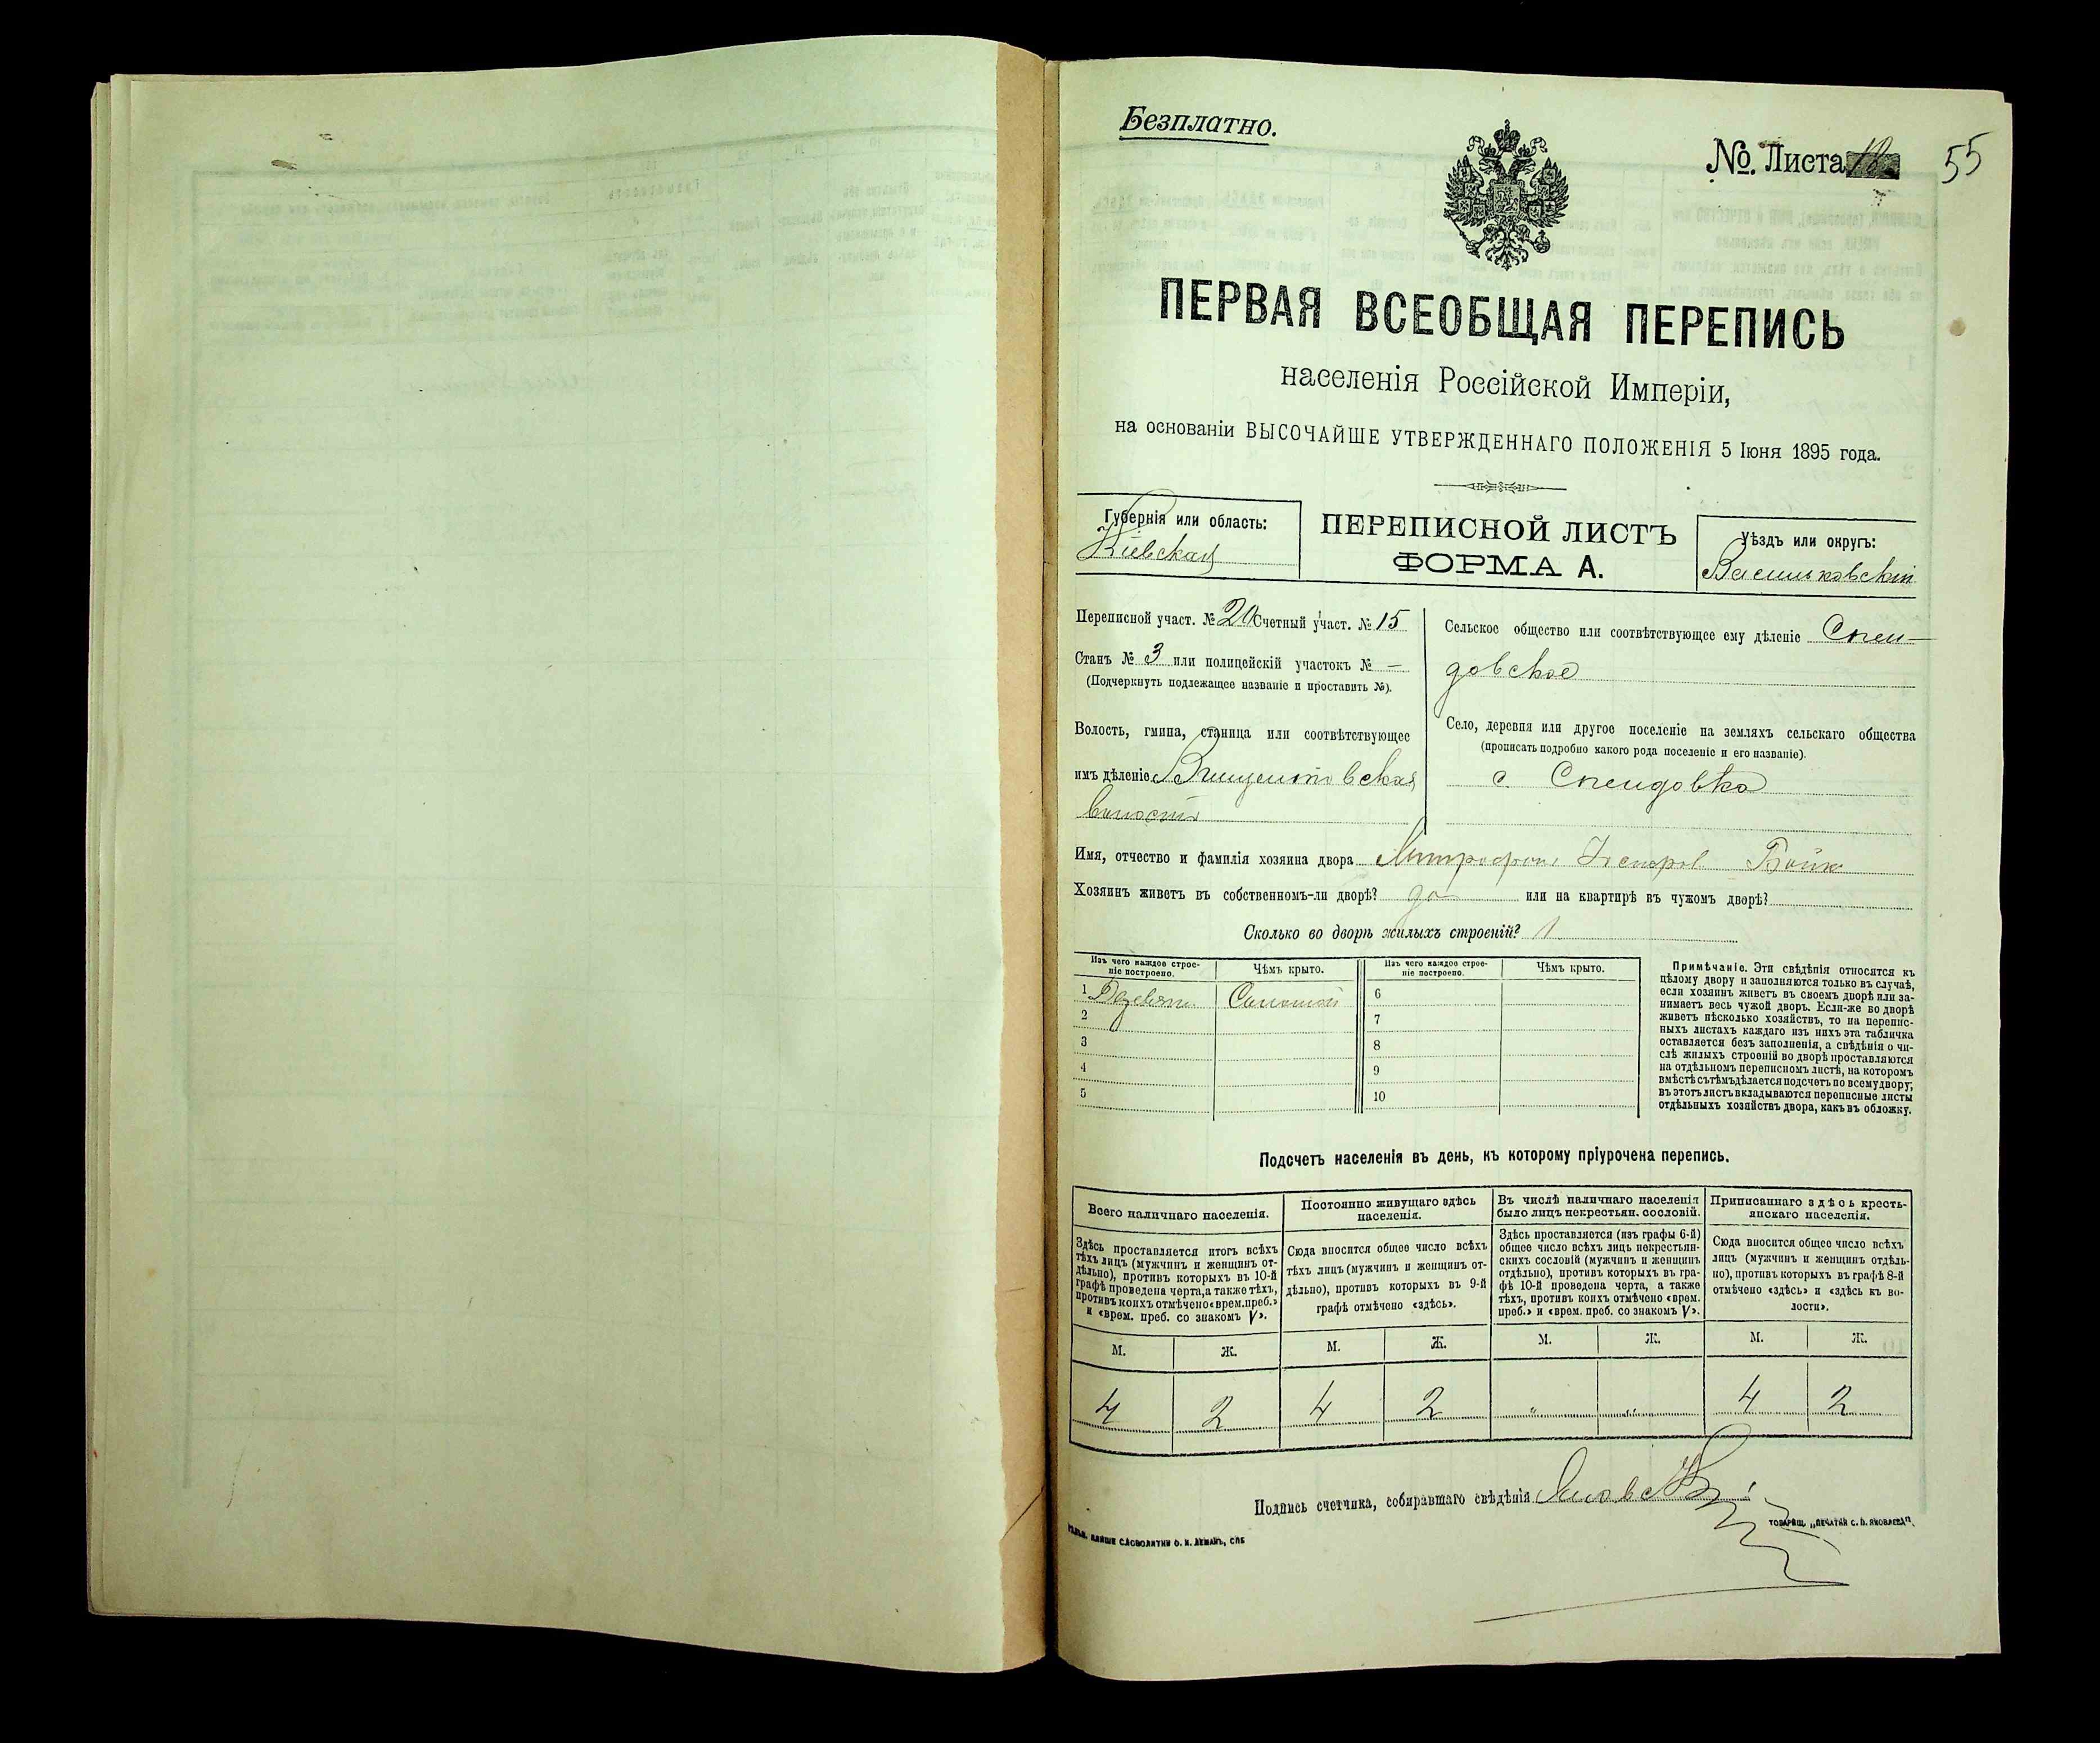 Безплатно.
№. Листа 18 55
ПЕРВАЯ ВСЕОБЩАЯ ПЕРЕПИСЬ
населенія Россійской Имперіи,
на основаніи ВЫСОЧАЙШЕ УТВЕРЖДЕННАГО ПОЛОЖЕНІЯ 5 Іюня 1895 года.
Губернія или область:
Кіевская
ПЕРЕПИСНОЙ ЛИСТЪ
ФОРМА А.
Уѣздъ или округъ:
Васильковскій
Переписной участ. № 20 Счетный участ. № 15
Станъ № 3 или полицейскій участокъ № —
(Подчеркнуть подлежащее названіе и проставить №).
Волость, гмина, станица или соотвѣтствующее
имъ дѣленіе Винцентовская
волость
Сельское общество или соотвѣтствующее ему дѣленіе Спен-
довское
Село, деревня или другое поселеніе на земляхъ сельскаго общества
(прописать подробно какого рода поселеніе и его названіе).
с. Спендовка
Имя, отчество и фамилія хозяина двора Митрофанъ Несторов Бойко
Хозяинъ живетъ въ собственномъ-ли дворѣ? да или на квартирѣ въ чужомъ дворѣ?
Сколько во дворѣ жилыхъ строеній? 1
Изъ чего каждое строе-
ніе построено.
Чѣмъ крыто.
Изъ чего каждое строе-
ніе построено.
Чѣмъ крыто.
1 Деревян. Соломой 6
2 7
3 8
4 9
5 10
Примѣчаніе. Эти свѣдѣнія относятся къ
цѣлому двору и заполняются только въ случаѣ,
если хозяинъ живетъ въ своемъ дворѣ или за-
нимаетъ весь чужой дворъ. Если-же во дворѣ
живетъ нѣсколько хозяйствъ, то на перепис-
ныхъ листахъ каждаго изъ нихъ эта табличка
оставляется безъ заполненія, а свѣдѣнія о чи-
слѣ жилыхъ строеній во дворѣ проставляются
на отдѣльномъ переписномъ листѣ, на которомъ
вмѣстѣ съ тѣмъ дѣлается подсчетъ по всему двору;
въ этотъ листъ вкладываются переписные листы
отдѣльныхъ хозяйствъ двора, какъ въ обложку.
Подсчетъ населенія въ день, къ которому пріурочена перепись.
Всего наличнаго населенія.
Здѣсь проставляется итогъ всѣхъ
тѣхъ лицъ (мужчинъ и женщинъ от-
дѣльно), противъ которыхъ въ 10-й
графѣ проведена черта, а также тѣхъ,
противъ коихъ отмѣчено «врем. преб.»
и «врем. преб. со знакомъ V».
Постоянно живущаго здѣсь
населенія.
Сюда вносится общее число всѣхъ
тѣхъ лицъ (мужчинъ и женщинъ от-
дѣльно), противъ которыхъ въ 9-й
графѣ отмѣчено «здѣсь».
Въ числѣ наличнаго населенія
было лицъ некрестьян. сословій.
Здѣсь проставляется (изъ графы 6-й)
общее число всѣхъ лицъ некрестьян-
скихъ сословій (мужчинъ и женщинъ
отдѣльно), противъ которыхъ въ гра-
фѣ 10-й проведена черта, а также
тѣхъ, противъ коихъ отмѣчено «врем.
преб.» и «врем. преб. со знакомъ V».
Приписаннаго здѣсь кресть-
янскаго населенія.
Сюда вносится общее число всѣхъ
лицъ (мужчинъ и женщинъ отдѣль-
но), противъ которыхъ въ графѣ 8-й
отмѣчено «здѣсь» и «здѣсь къ во-
лости».
М. Ж. М. Ж. М. Ж. М. Ж.
4 2 4 2 " " 4 2
Подпись счетчика, собиравшаго свѣдѣнія
СЛОВОЛИТНИ О. И. ЛЕМАНЪ, СПБ
ТОВАРИЩ. „ПЕЧАТНЯ С. П. ЯКОВЛЕВА".